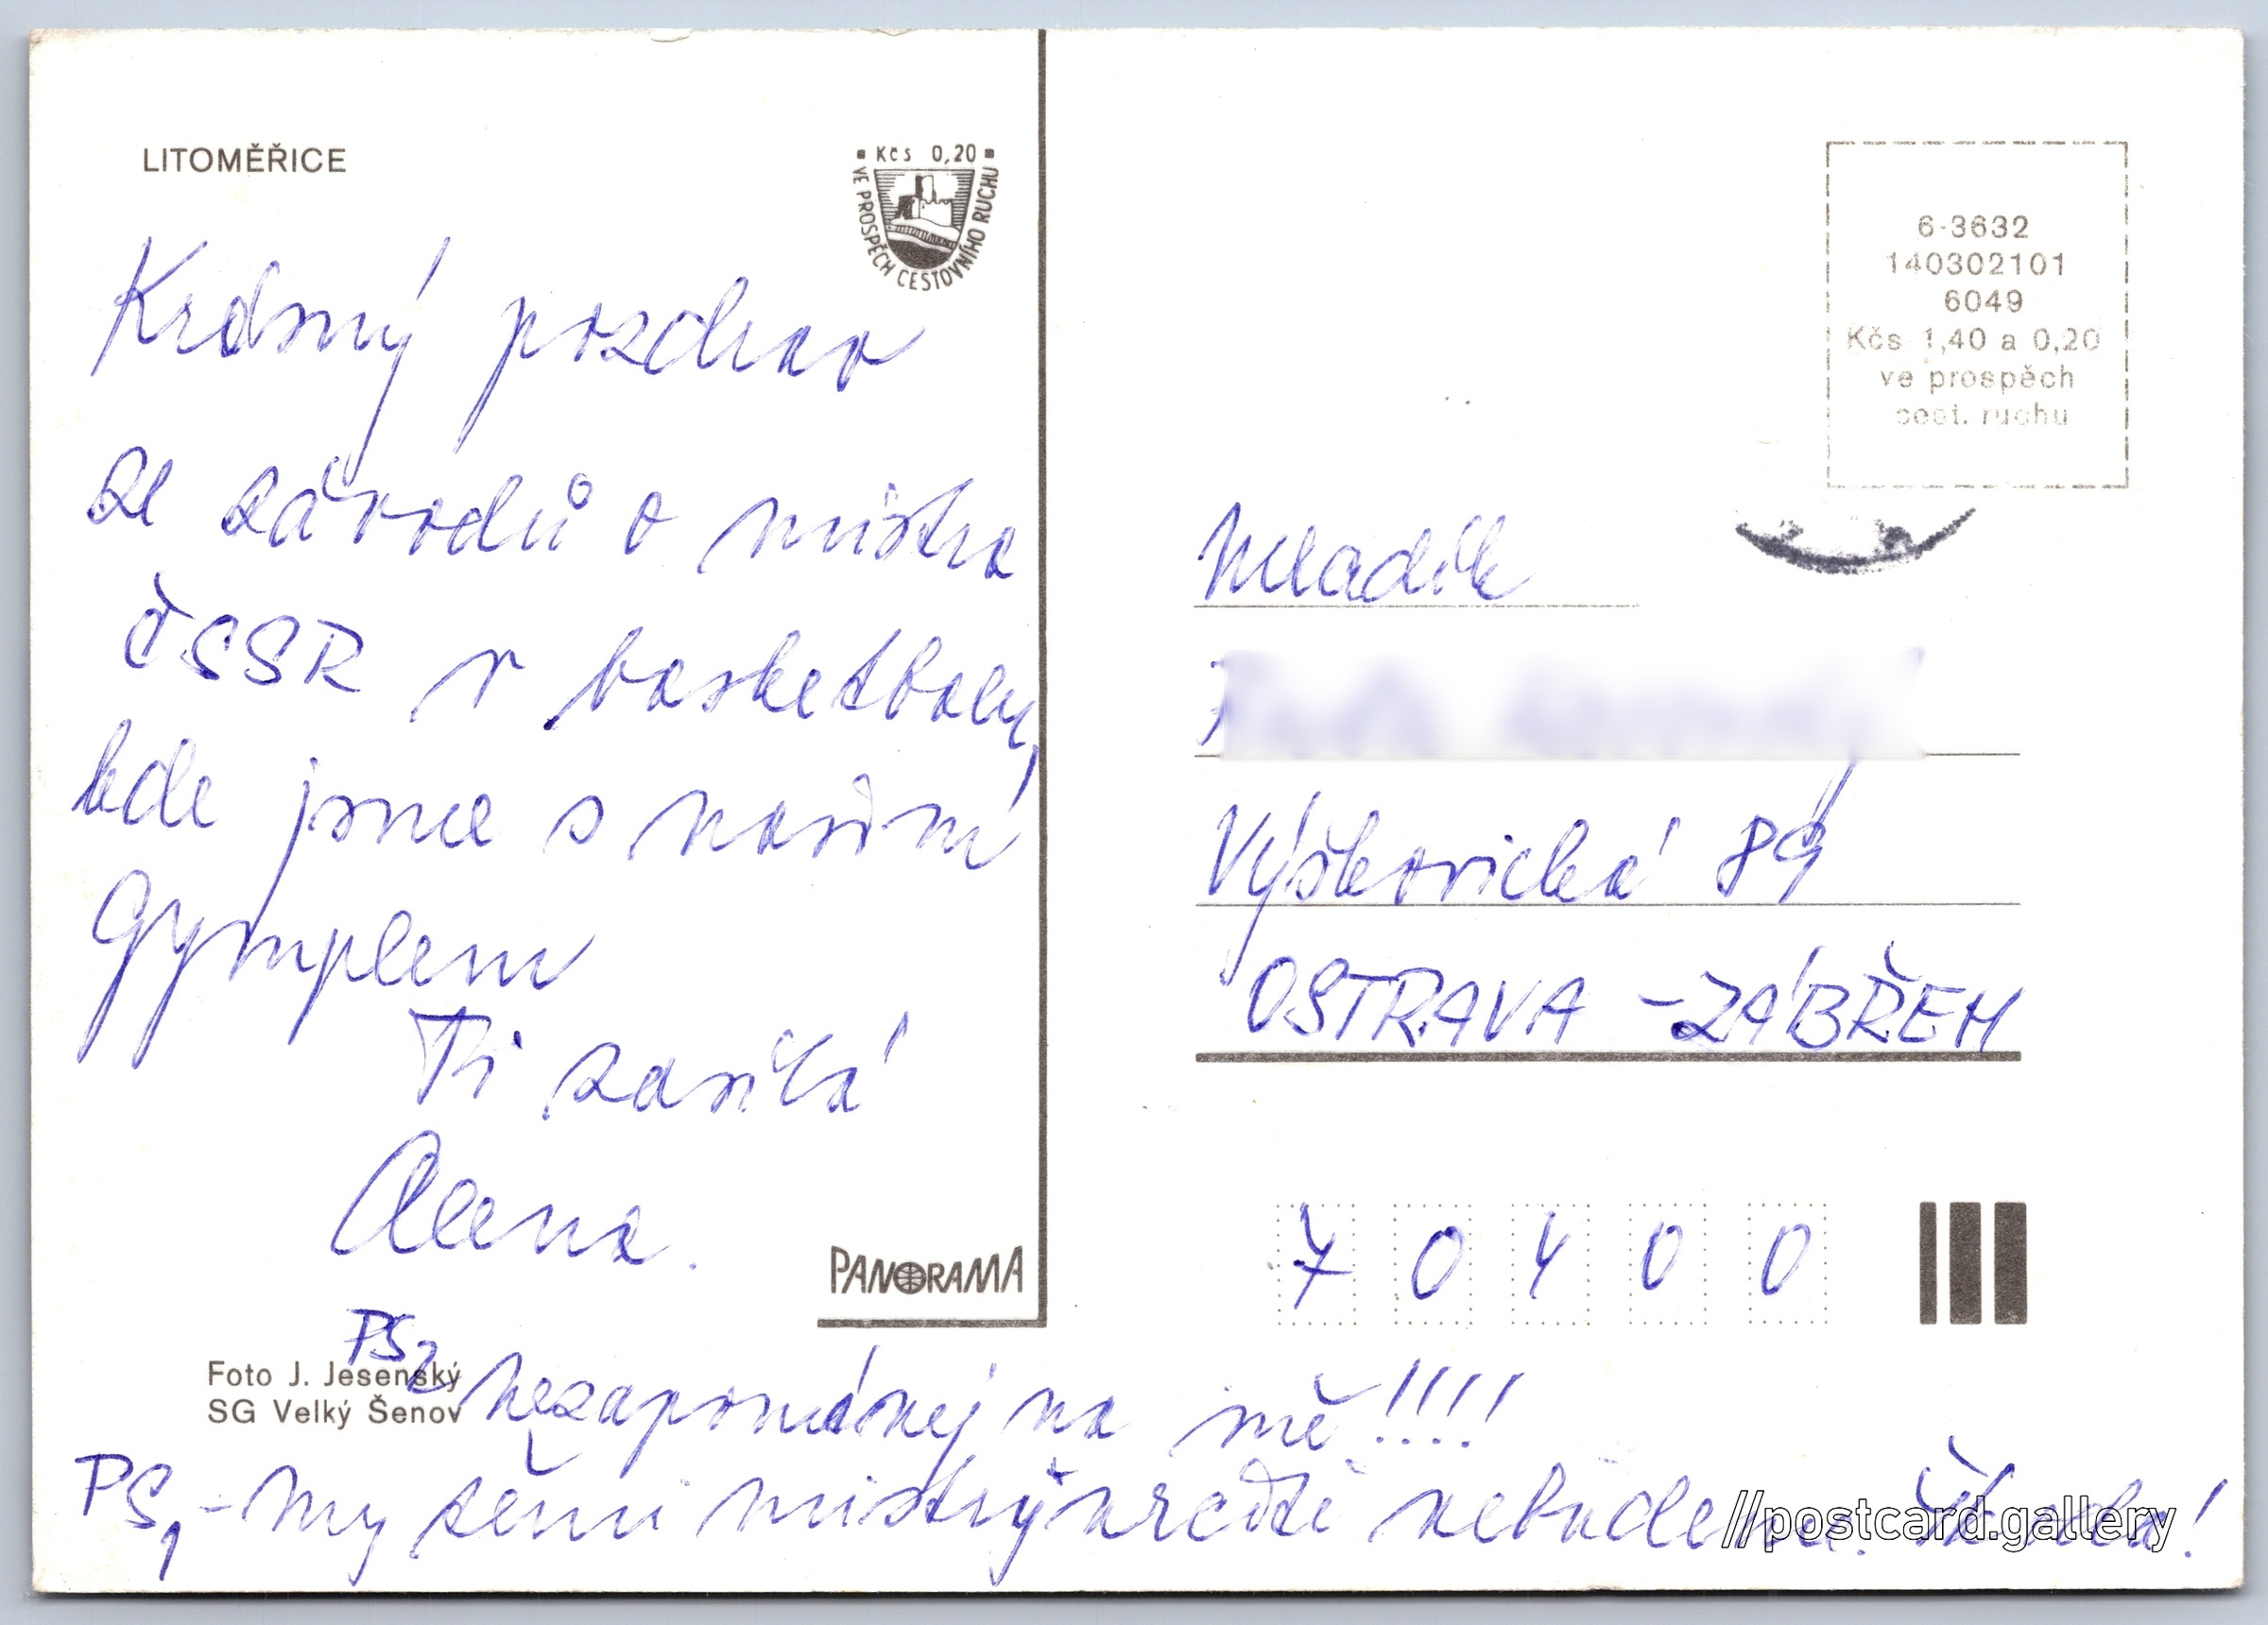 LITOMĚŘICE
Kčs 0,20
VE PROSPĚCH CESTOVNÍHO RUCHU
Krásný pozdrav
ze závodů o mistra
ČSSR v basketbalu,
kde jsme s naším
Gymplem
Ti zasílá
Alena.
PANORAMA
Foto J. Jesenský
SG Velký Šenov
PS2 Nezapomínej na mě!!!!
PS1 - My těmi mistry určitě nebudeme. Škoda!
6-3632
140302101
6049
Kčs 1,40 a 0,20
ve prospěch
cest. ruchu
Mladík
Výškovická 89
OSTRAVA - ZÁBŘEH
7 0 4 0 0
//postcard.gallery